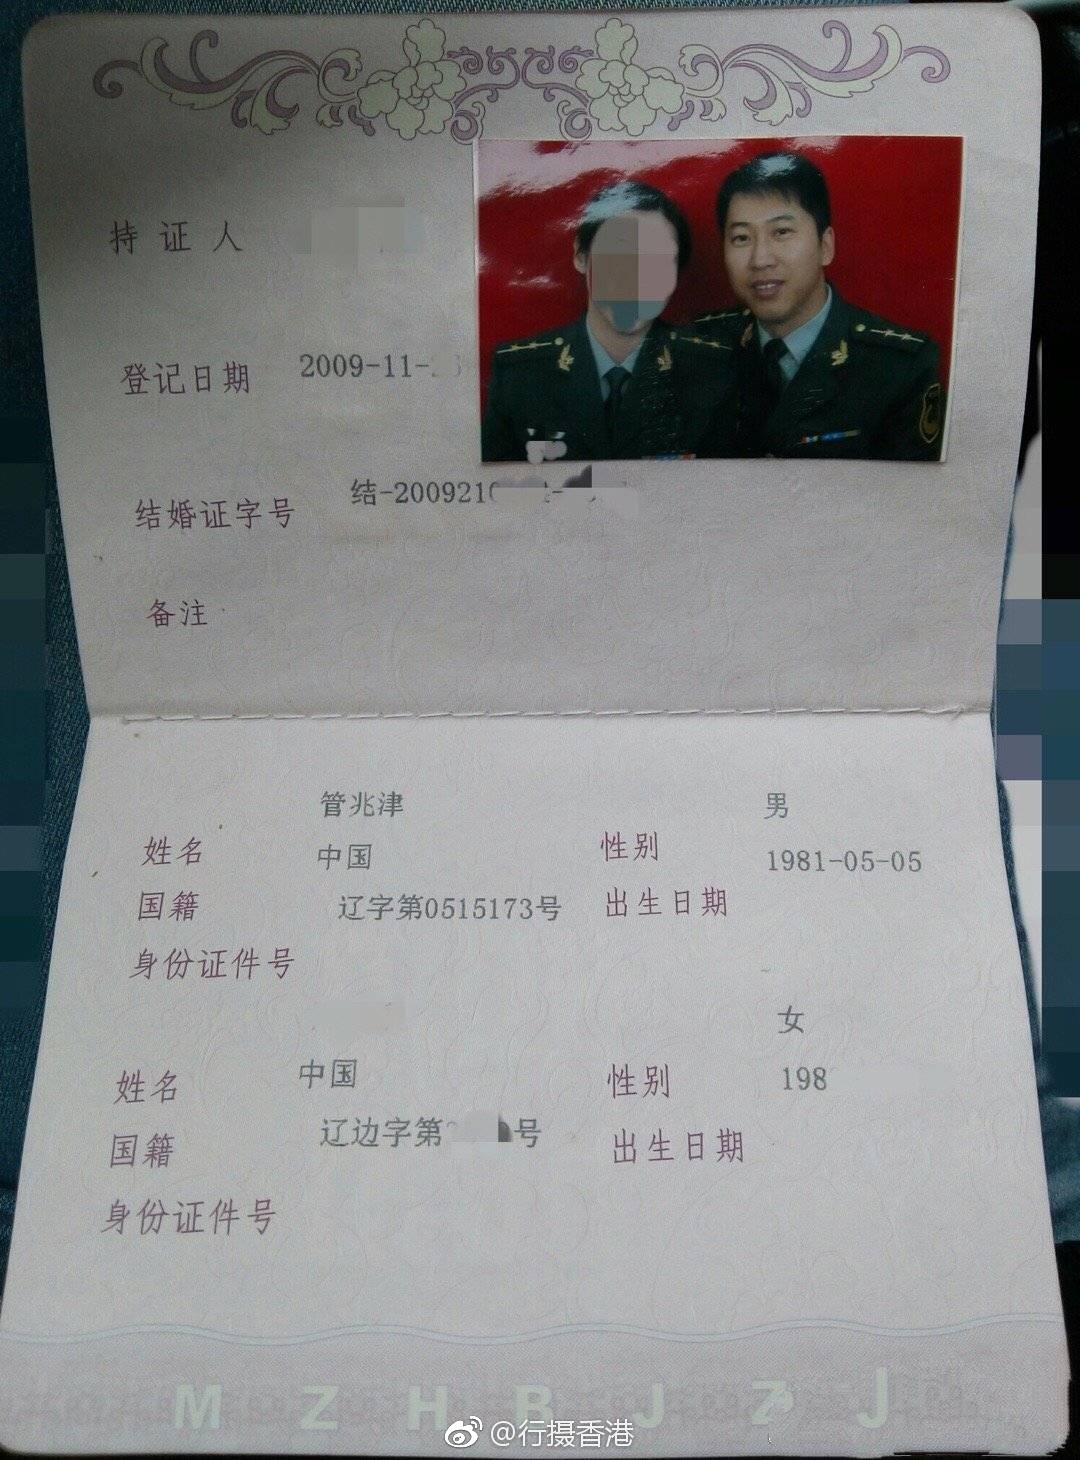 持证人
登记日期 2009-11-
结婚证字号 结-200921
备注
管兆津 男
姓名 性别
中国 1981-05-05
国籍 出生日期
辽字第0515173号
身份证件号
女
姓名 性别
中国 198
国籍 出生日期
辽边字第 号
身份证件号
MZHBJZJ
@行摄香港